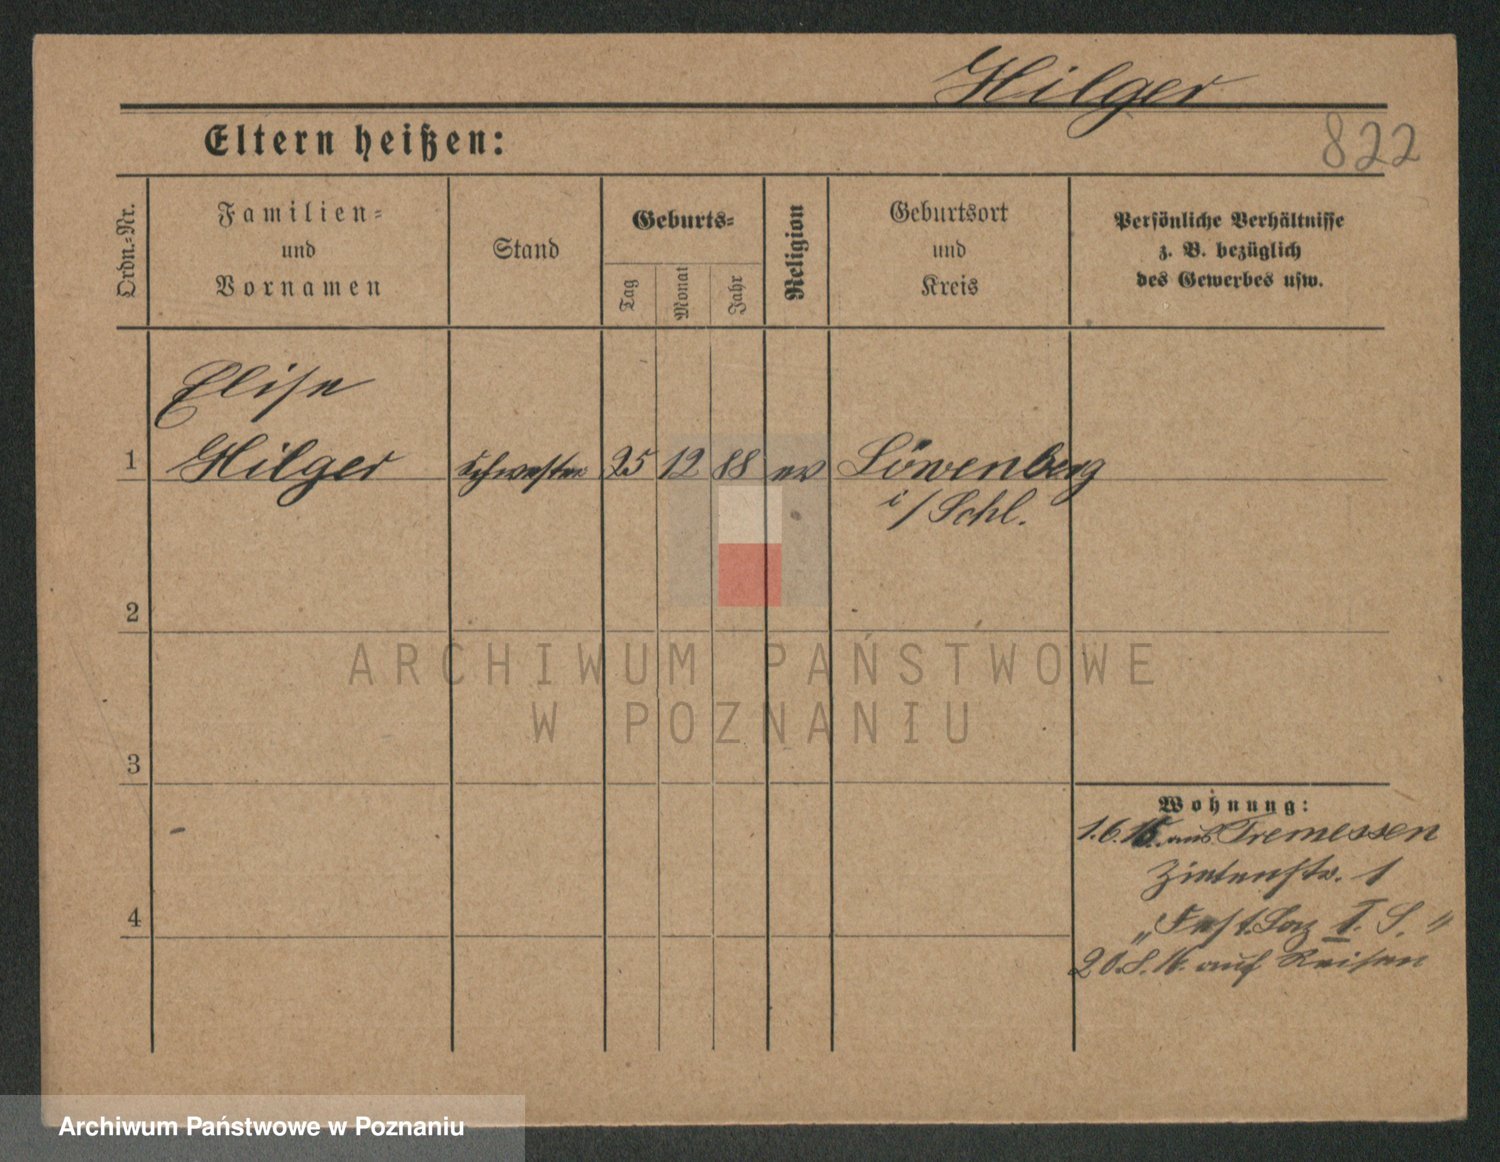 Hilger
822
Eltern heißen:
Ordn.-Nr.
Familien-
und
Vornamen
Stand
Geburts-
Tag
Monat
Jahr
Religion
Geburtsort
und
Kreis
Persönliche Verhältnisse
z. B. bezüglich
des Gewerbes usw.
Elise
1 Hilger Schwester 25 12 88 ev Löwenberg
i/Schl.
2
ARCHIWUM PAŃSTWOWE
W POZNANIU
3
Wohnung:
1.6.16. aus Tremessen
Zietenstr. 1
4
"Fest. Laz I. S."
20.8.16. auf Reisen
Archiwum Państwowe w Poznaniu